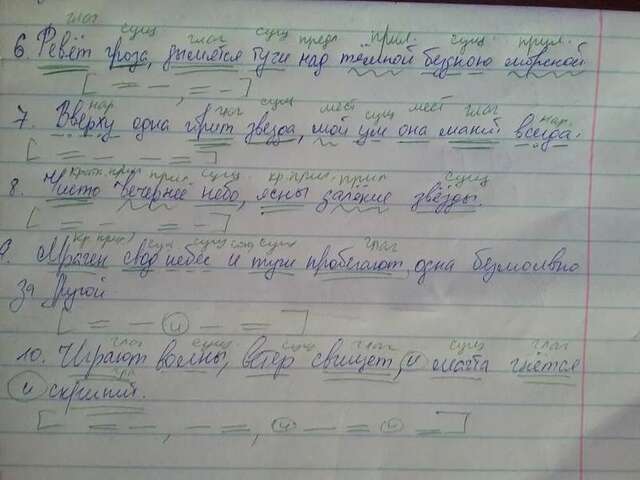 глаг сущ глаг сущ предл прил. сущ. прил.
6. Ревёт гроза, дымятся тучи над тёмной бездною морской
[ = — , = — ]
нар глаг сущ мест сущ мест глаг нар.
7. Вверху одна горит звезда, мой ум она манит всегда.
кратк. прил прил. сущ. кр. прил. прил сущ
8. Чисто вечернее небо, ясны далёкие звёзды.
[ = — , = — ]
кр прил сущ сущ союз сущ глаг
9. Мрачен свод небес и тучи пробегают, одна безмолвно
за другой.
[ = — и — = ]
глаг сущ. сущ глаг сущ глаг
10. Играют волны, ветер свищет, и мачта гнётся
и скрипит.
[ = — , — = , и — = и = ]